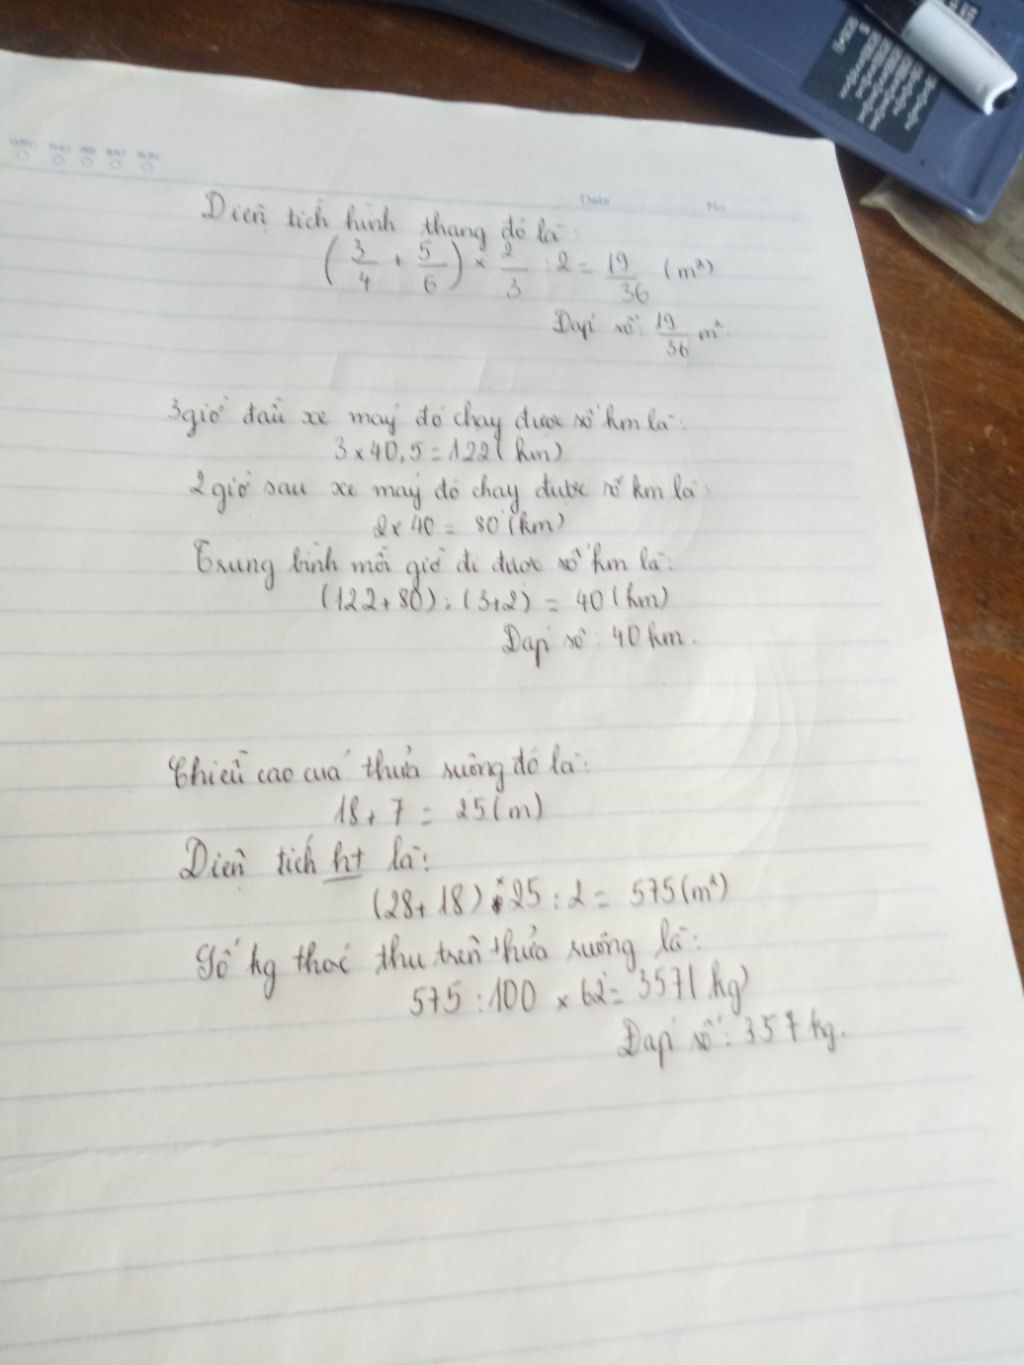 Diện tích hình thang đó là:
(3/4 + 5/6) × 2/3 : 2 = 19/36 (m²)
Đáp số: 19/36 m².
3 giờ đầu xe máy đó chạy được số km là:
3 × 40,5 = 122 (km)
2 giờ sau xe máy đó chạy được số km là:
2 × 40 = 80 (km)
Trung bình mỗi giờ đi được số km là:
(122 + 80) : (3+2) = 40 (km)
Đáp số: 40 km.
Chiều cao của thửa ruộng đó là:
18 + 7 = 25 (m)
Diện tích ht là:
(28 + 18) × 25 : 2 = 575 (m²)
Số kg thóc thu trên thửa ruộng là:
575 : 100 × 62 = 357 (kg)
Đáp số: 357 kg.